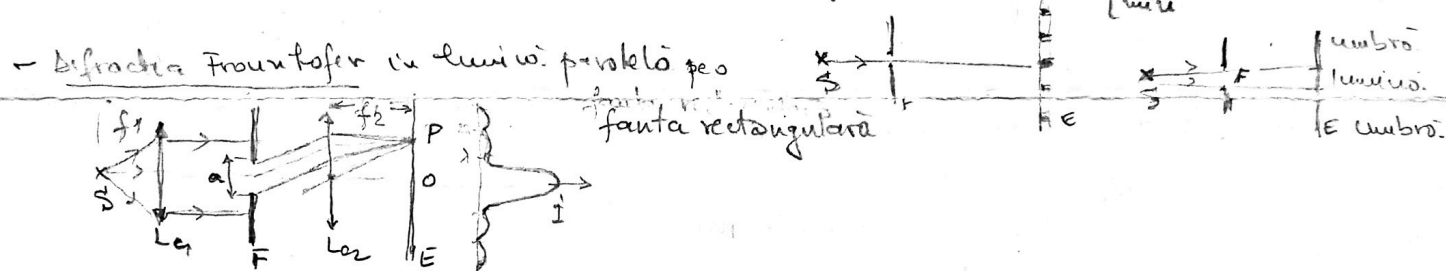 - Difractia Fraunhofer in lumină paralelă pe o
fanta rectangulară
f1
S
a
Le1
F
f2
Le2
P
O
E
I
S
F
E
S
F
umbră
lumină
E umbră